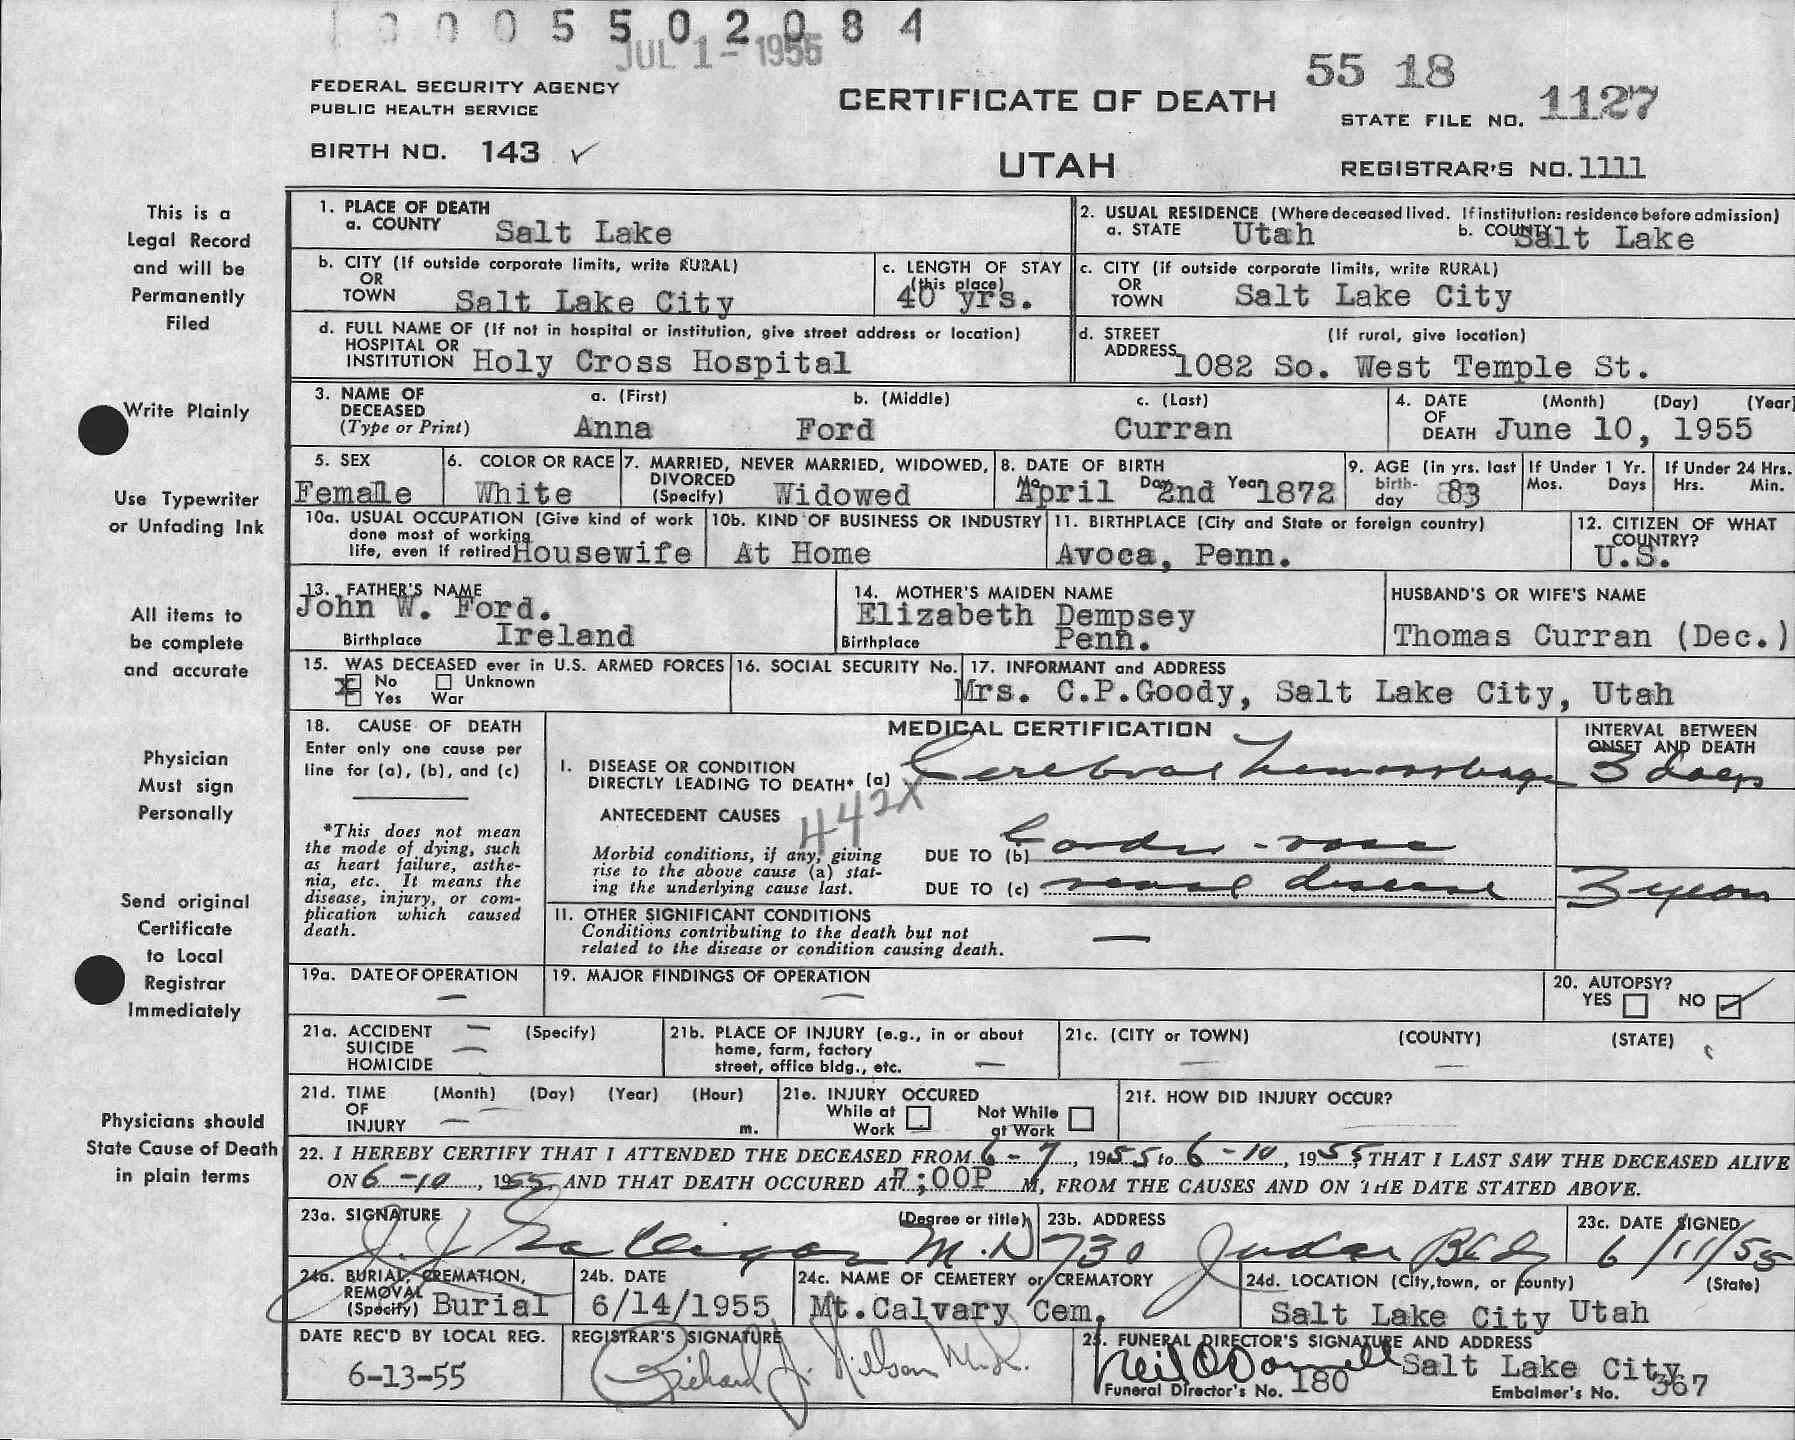 1 0 0 0 5 5 0 2 0 8 4
JUL 1 - 1955
FEDERAL SECURITY AGENCY
PUBLIC HEALTH SERVICE
BIRTH NO. 143 ✓
CERTIFICATE OF DEATH
UTAH
55 18
STATE FILE NO. 1127
REGISTRAR'S NO. 1111
This is a
Legal Record
and will be
Permanently
Filed
Write Plainly
Use Typewriter
or Unfading Ink
All items to
be complete
and accurate
Physician
Must sign
Personally
Send original
Certificate
to Local
Registrar
Immediately
Physicians should
State Cause of Death
in plain terms
1. PLACE OF DEATH
a. COUNTY Salt Lake
2. USUAL RESIDENCE (Where deceased lived. If institution: residence before admission)
a. STATE Utah b. COUNTY Salt Lake
b. CITY (If outside corporate limits, write RURAL)
OR
TOWN Salt Lake City
c. LENGTH OF STAY
(this place)
40 yrs.
c. CITY (if outside corporate limits, write RURAL)
OR
TOWN Salt Lake City
d. FULL NAME OF (If not in hospital or institution, give street address or location)
HOSPITAL OR
INSTITUTION Holy Cross Hospital
d. STREET (If rural, give location)
ADDRESS 1082 So. West Temple St.
3. NAME OF
DECEASED
(Type or Print)
a. (First) b. (Middle) c. (Last)
Anna Ford Curran
4. DATE (Month) (Day) (Year)
OF
DEATH June 10, 1955
5. SEX
Female
6. COLOR OR RACE
White
7. MARRIED, NEVER MARRIED, WIDOWED,
DIVORCED
(Specify) Widowed
8. DATE OF BIRTH
Mo. Day Year
April 2nd 1872
9. AGE (in yrs. last
birth-
day 83
If Under 1 Yr.
Mos. Days
If Under 24 Hrs.
Hrs. Min.
10a. USUAL OCCUPATION (Give kind of work
done most of working
life, even if retired Housewife
10b. KIND OF BUSINESS OR INDUSTRY
At Home
11. BIRTHPLACE (City and State or foreign country)
Avoca, Penn.
12. CITIZEN OF WHAT
COUNTRY?
U.S.
13. FATHER'S NAME
John W. Ford.
Birthplace Ireland
14. MOTHER'S MAIDEN NAME
Elizabeth Dempsey
Birthplace Penn.
HUSBAND'S OR WIFE'S NAME
Thomas Curran (Dec.)
15. WAS DECEASED ever in U.S. ARMED FORCES
X No Unknown
Yes War
16. SOCIAL SECURITY No.
17. INFORMANT and ADDRESS
Mrs. C.P.Goody, Salt Lake City, Utah
18. CAUSE OF DEATH
Enter only one cause per
line for (a), (b), and (c)
*This does not mean
the mode of dying, such
as heart failure, asthe-
nia, etc. It means the
disease, injury, or com-
plication which caused
death.
MEDICAL CERTIFICATION
I. DISEASE OR CONDITION
DIRECTLY LEADING TO DEATH* (a) Cerebral hemorrhage
442X
ANTECEDENT CAUSES
Morbid conditions, if any, giving
rise to the above cause (a) stat-
ing the underlying cause last.
DUE TO (b) Cardio-vasc
DUE TO (c) renal disease
INTERVAL BETWEEN
ONSET AND DEATH
3 days
3 years
II. OTHER SIGNIFICANT CONDITIONS
Conditions contributing to the death but not
related to the disease or condition causing death. —
19a. DATE OF OPERATION
—
19. MAJOR FINDINGS OF OPERATION
—
20. AUTOPSY?
YES NO ✓
21a. ACCIDENT — (Specify)
SUICIDE —
HOMICIDE
21b. PLACE OF INJURY (e.g., in or about
home, farm, factory
street, office bldg., etc. —
21c. (CITY or TOWN) (COUNTY) (STATE)
— —
21d. TIME (Month) (Day) (Year) (Hour)
OF
INJURY — m.
21e. INJURY OCCURED
While at Not While
Work at Work
21f. HOW DID INJURY OCCUR?
22. I HEREBY CERTIFY THAT I ATTENDED THE DECEASED FROM 6-7, 1955 to 6-10, 1955, THAT I LAST SAW THE DECEASED ALIVE
ON 6-10, 1955, AND THAT DEATH OCCURED AT 7;00P M, FROM THE CAUSES AND ON THE DATE STATED ABOVE.
23a. SIGNATURE (Degree or title)
J. J. Galligan M.D
23b. ADDRESS
730 Judge Bldg
23c. DATE SIGNED
6/11/55
24a. BURIAL, CREMATION,
REMOVAL
(Specify) Burial
24b. DATE
6/14/1955
24c. NAME OF CEMETERY or CREMATORY
Mt.Calvary Cem.
24d. LOCATION (City, town, or county) (State)
Salt Lake City Utah
DATE REC'D BY LOCAL REG.
6-13-55
REGISTRAR'S SIGNATURE
Richard J. Nilson M.D.
25. FUNERAL DIRECTOR'S SIGNATURE AND ADDRESS
Neil O'Donnell Salt Lake City
Funeral Director's No. 180 Embalmer's No. 367